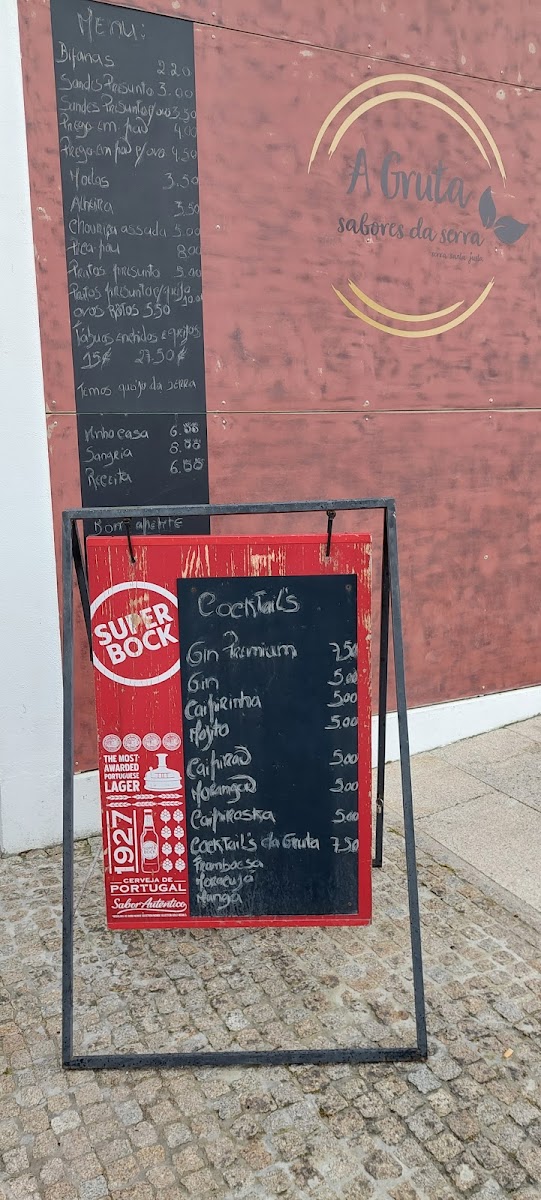 Menu:
Bifanas 2.20
Sandes Presunto 3.00
Sandes Presunto/ovo 3.50
Prego em pão 4.00
Prego em pão c/ovo 4.50
3.50
Alheira 5.50
Chouriça assada 5.00
Pica pau 8.00
Pratos presunto 5.00
Pratos presunto e queijo 10.00
ovos Rotos 5.50
Tábuas Enchidos e queijos
15€ 27.50€
Temos queijo da serra
Vinho casa 6.00
Sangria 8.00
Receita 6.00
Bom apetite
A Gruta
sabores da serra
SUPER
BOCK
THE MOST
AWARDED
PORTUGUESE
LAGER
1927
CERVEJA DE
PORTUGAL
Sabor Autêntico
Cocktail's
Gin Premium 7.50
Gin 5.00
Caipirinha 5.00
Mojito 5.00
Caipirão 5.00
Morangão 5.00
Caipiroska 5.00
Cocktail's da Gruta 7.50
Framboesa
Maracujá
Manga